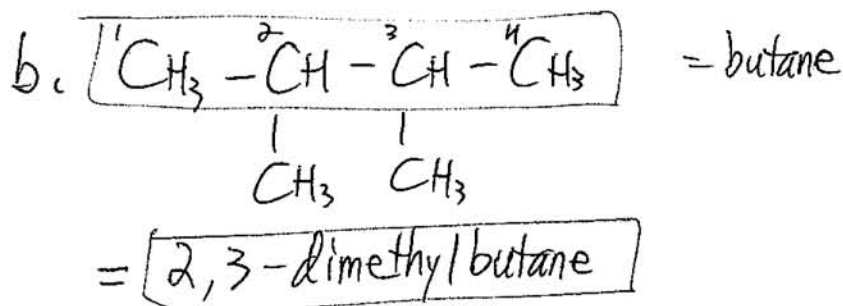 b. ¹CH₃ - ²CH - ³CH - ⁴CH₃ = butane
CH₃ CH₃
= 2,3-dimethylbutane